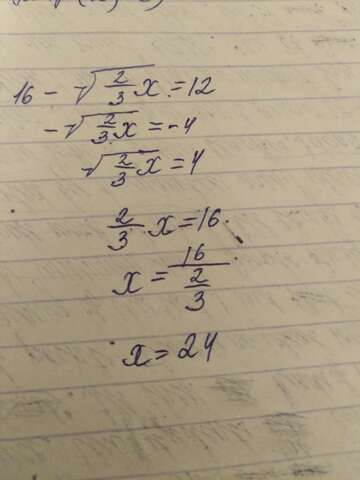 16 - √(2/3 x) = 12
-√(2/3 x) = -4
√(2/3 x) = 4
2/3 x = 16
x = 16/(2/3)
x = 24